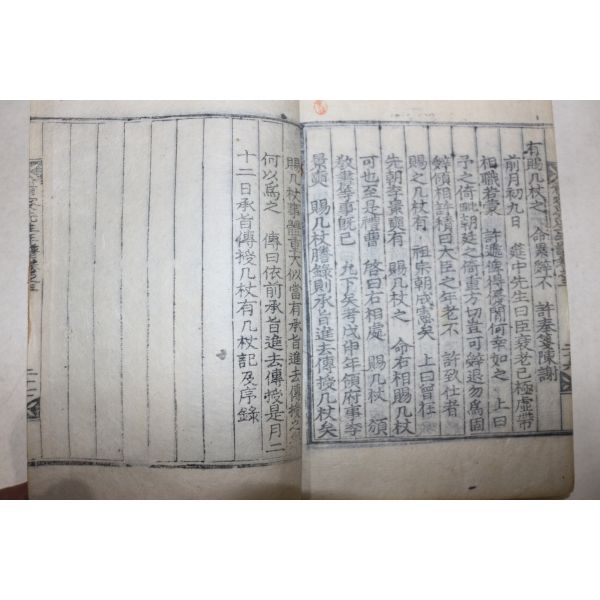 有賜几杖之 命累辭不 許奉箋陳謝
前月初九日 筵中先生曰臣衰老已極虛帶
相職若蒙 許遞俾得優閒何幸如之 上曰
予之倚與朝廷之倚重方切豈可辭退勿爲固
辭領相許積曰大臣之年老不 許致仕者
賜之几杖有 祖宗朝成憲矣 上曰曾在
先朝李景奭有 賜几杖之 命右相賜几杖
可也至是禮曹 啓曰右相處 賜几杖 頒
敎書等事旣已 允下矣考戊申年領府事李
景奭 賜几杖謄錄則承旨進去傳授几杖矣
賜几杖事體重大似當有承旨進去傳授之
何以爲之 傳曰依前承旨進去傳授是月二
十二日承旨傳授几杖有几杖記及序錄